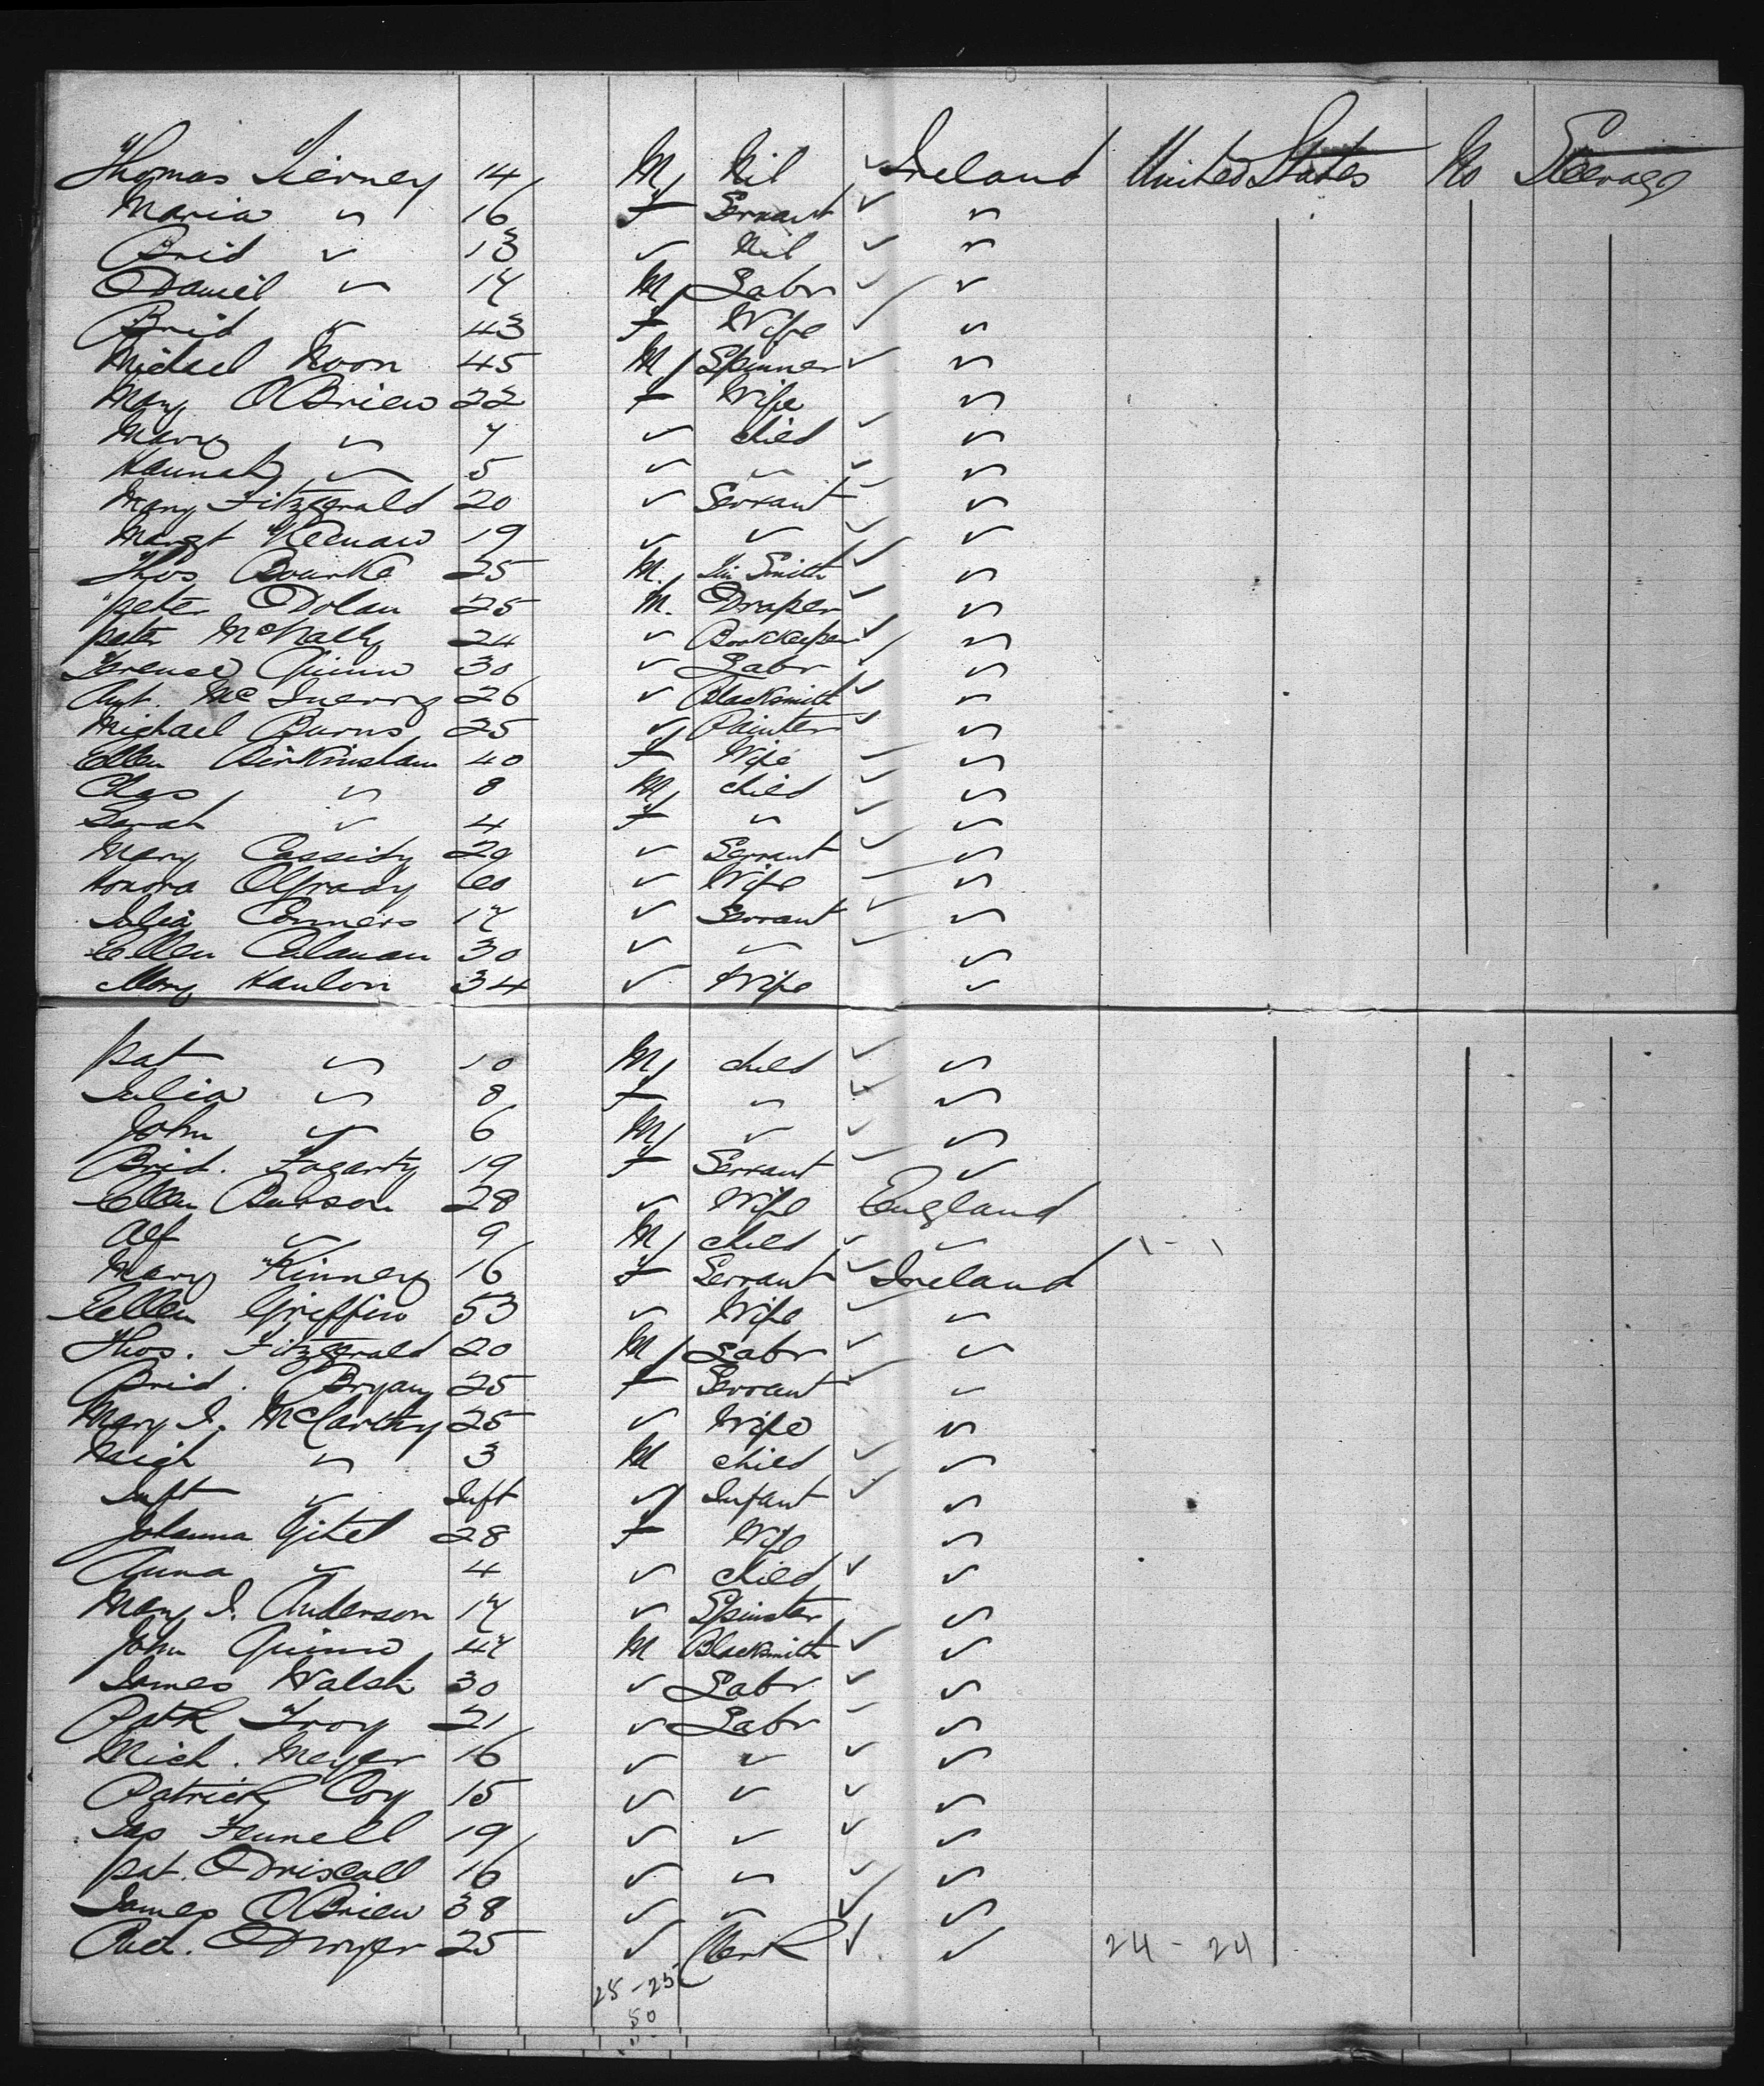 Thomas Tierney 14 M Nil ✓ Ireland United States No Steerage
Maria " 16 F Servant ✓ "
Brid " 13 " Nil ✓ "
Daniel " 17 M Labr ✓ "
Brid " 43 F Wife ✓ "
Michael Noon 45 M Spinner ✓ "
Mary OBrien 22 F Wife "
Mary " 7 " child ✓ "
Hannah " 5 " " ✓ "
Mary Fitzgerald 20 " Servant ✓ "
Margt Keenan 19 " " ✓ "
Thos Bourke 25 M. Tin Smith ✓ "
Peter Dolan 25 M. Draper ✓ "
Peter McNally 24 " Bookkeeper ✓ "
Terence Quinn 30 " Labr ✓ "
Ant. Mc 26 " Blacksmith ✓ "
Michael Burns 25 " Painter ✓ "
Ellen Birkinsham 40 F Wife "
Chas " 8 M child ✓ "
Sarah " 4 F " ✓ "
Mary Cassidy 20 " Servant ✓ "
Honora OGrady 60 " Wife "
Julia Conners 17 " Servant ✓ "
Ellen Calanan 30 " " ✓ "
Mary Hanlon 34 " Wife "
Pat " 10 M child ✓ "
Julia " 8 F " ✓ "
John " 6 M " ✓ "
Brid. Fogarty 19 F Servant "
Ellen 28 " Wife England
Alf " 9 M child ✓ " 1 - 1
Mary Kinney 16 F Servant ✓ Ireland
Ellen Griffin 53 " Wife "
Thos. Fitzgerald 20 M Labr ✓ "
Brid. Bryan 25 F Servant ✓ "
Mary J. McCarthy 25 " Wife "
Migh " 3 M child ✓ "
Inft " Inft " Infant ✓ "
Johanna Gitel 28 F Wife "
Anna " 4 " child ✓ "
Mary J. Anderson 17 " Spinster "
John Quinn 47 M Blacksmith ✓ "
James Walsh 30 " Labr ✓ "
Patk Troy 21 " Labr "
Mich. Meyer 16 " " ✓ "
Patrick Coy 15 " " ✓ "
Jas Fennell 19 " " ✓ "
Pat. ODriscoll 16 " " ✓ "
James OBrien 38 " " ✓ "
ODwyer 25 " Clerk ✓ " 24 - 24
25 - 25
50